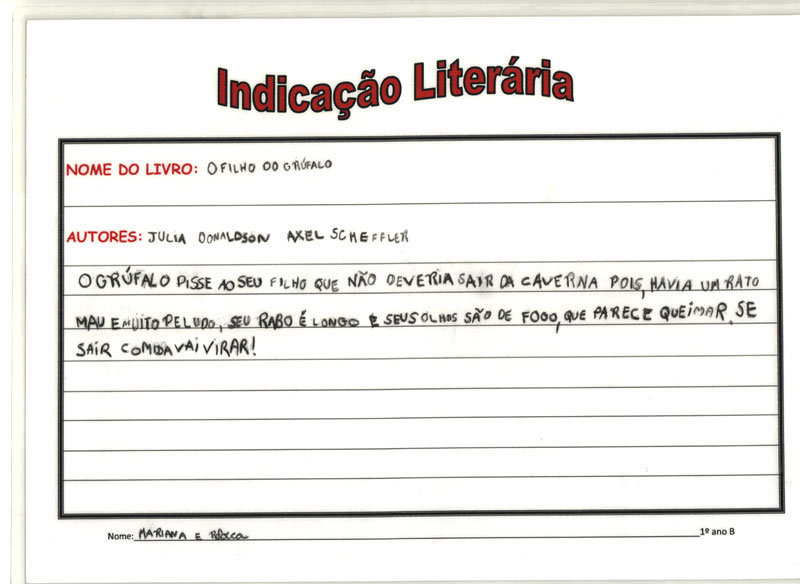 Indicação Literária
NOME DO LIVRO: O FILHO DO GRÚFALO
AUTORES: JULIA DONALDSON AXEL SCHEFFLER
O GRÚFALO DISSE AO SEU FILHO QUE NÃO DEVERIA SAIR DA CAVERNA POIS, HAVIA UM RATO
MAU E MUITO PELUDO, SEU RABO É LONGO E SEUS OLHOS SÃO DE FOGO, QUE PARECE QUEIMAR, SE
SAIR COMIDA VAI VIRAR!
Nome: MARIANA E 1º ano B